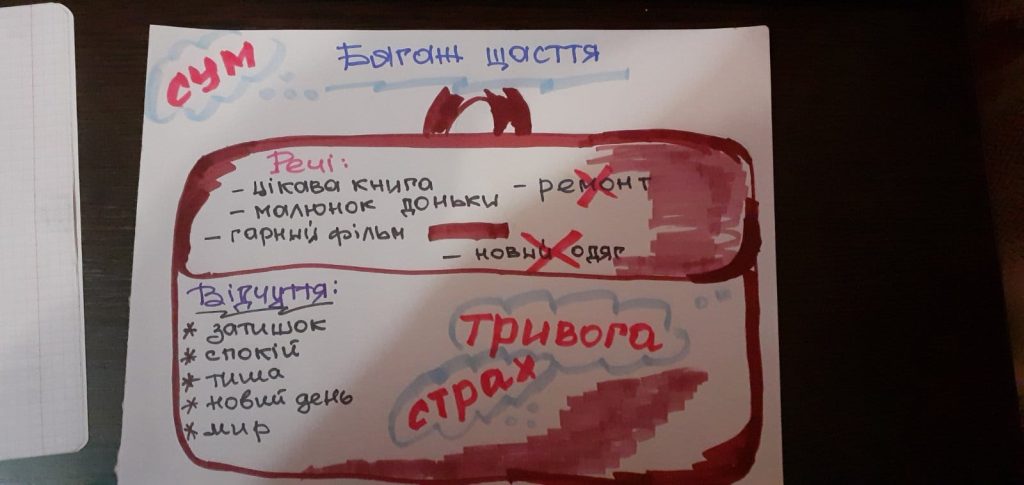 сум
Багаж щастя
Речі:
– цікава книга
– малюнок доньки
– гарный фільм
– ремонт
– новый одяг
Відчуття:
* затишок
* спокій
* тиша
* новий день
* мир
тривога
страх